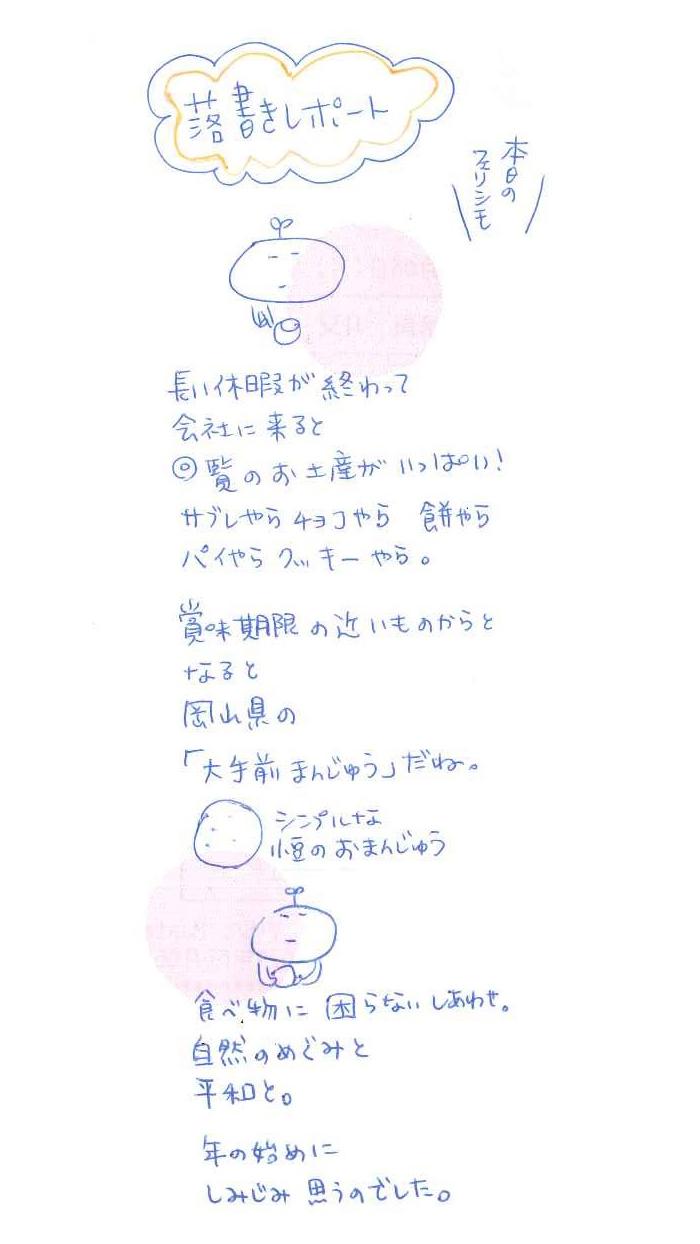 落書きレポート
本日の
フェリシモ
長い休暇が終わって
会社に来ると
◎覧のお土産がいっぱい！
サブレやらチョコやら 餅やら
パイやらクッキーやら。
賞味期限の近いものからと
なると
岡山県の
「大手前まんじゅう」だね。
シンプルな
小豆のおまんじゅう
食べ物に困らないしあわせ。
自然のめぐみと
平和と。
年の始めに
しみじみ思うのでした。